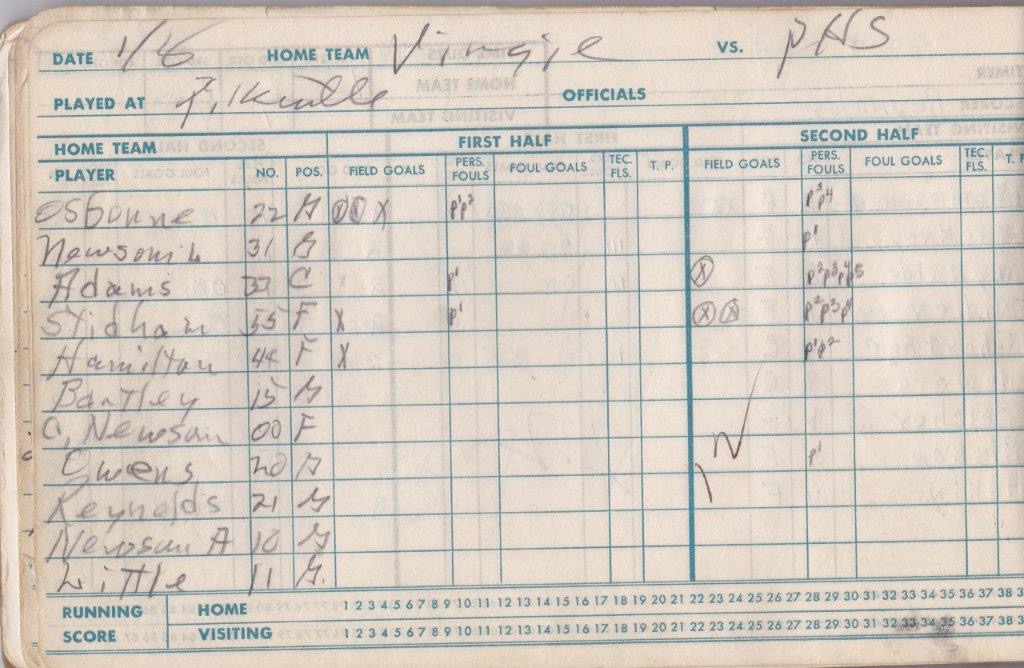 DATE 1/16 HOME TEAM Virgie VS. PHS
PLAYED AT OFFICIALS
HOME TEAM FIRST HALF SECOND HALF
PLAYER NO. POS. FIELD GOALS PERS. FOULS FOUL GOALS TEC. FLS. T. P. FIELD GOALS PERS. FOULS FOUL GOALS TEC. FLS. T. P.
Osborne 22 G X P1 P2 P3 P4
Newsom L 31 G P1
Adams C P1 X P2 P3 P4 P5
Stidham 55 F X P1 X X P2 P3 P4
Hamilton 44 F X P1 P2
Bartley 15 G
C, Newsom 00 F
Owens 20 G P1
Reynolds 21 G
Newsom A 10 G
Little 11 G.
RUNNING SCORE
HOME 1 2 3 4 5 6 7 8 9 10 11 12 13 14 15 16 17 18 19 20 21 22 23 24 25 26 27 28 29 30 31 32 33 34 35 36 37 38
VISITING 1 2 3 4 5 6 7 8 9 10 11 12 13 14 15 16 17 18 19 20 21 22 23 24 25 26 27 28 29 30 31 32 33 34 35 36 37 38